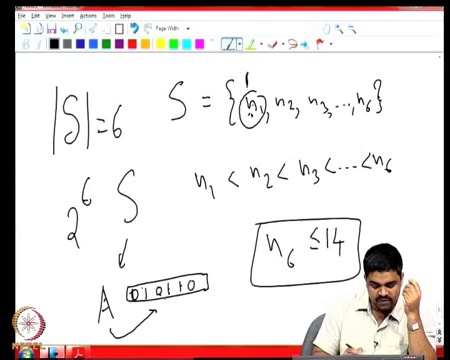 File Edit View Insert Actions Tools Help
Page Width
|S| = 6
1
S = {n₁, n₂, n₃, ..., n₆}
n₁ < n₂ < n₃ < ... < n₆
2⁶ S
n₆ ≤ 14
A 010110
NPTEL